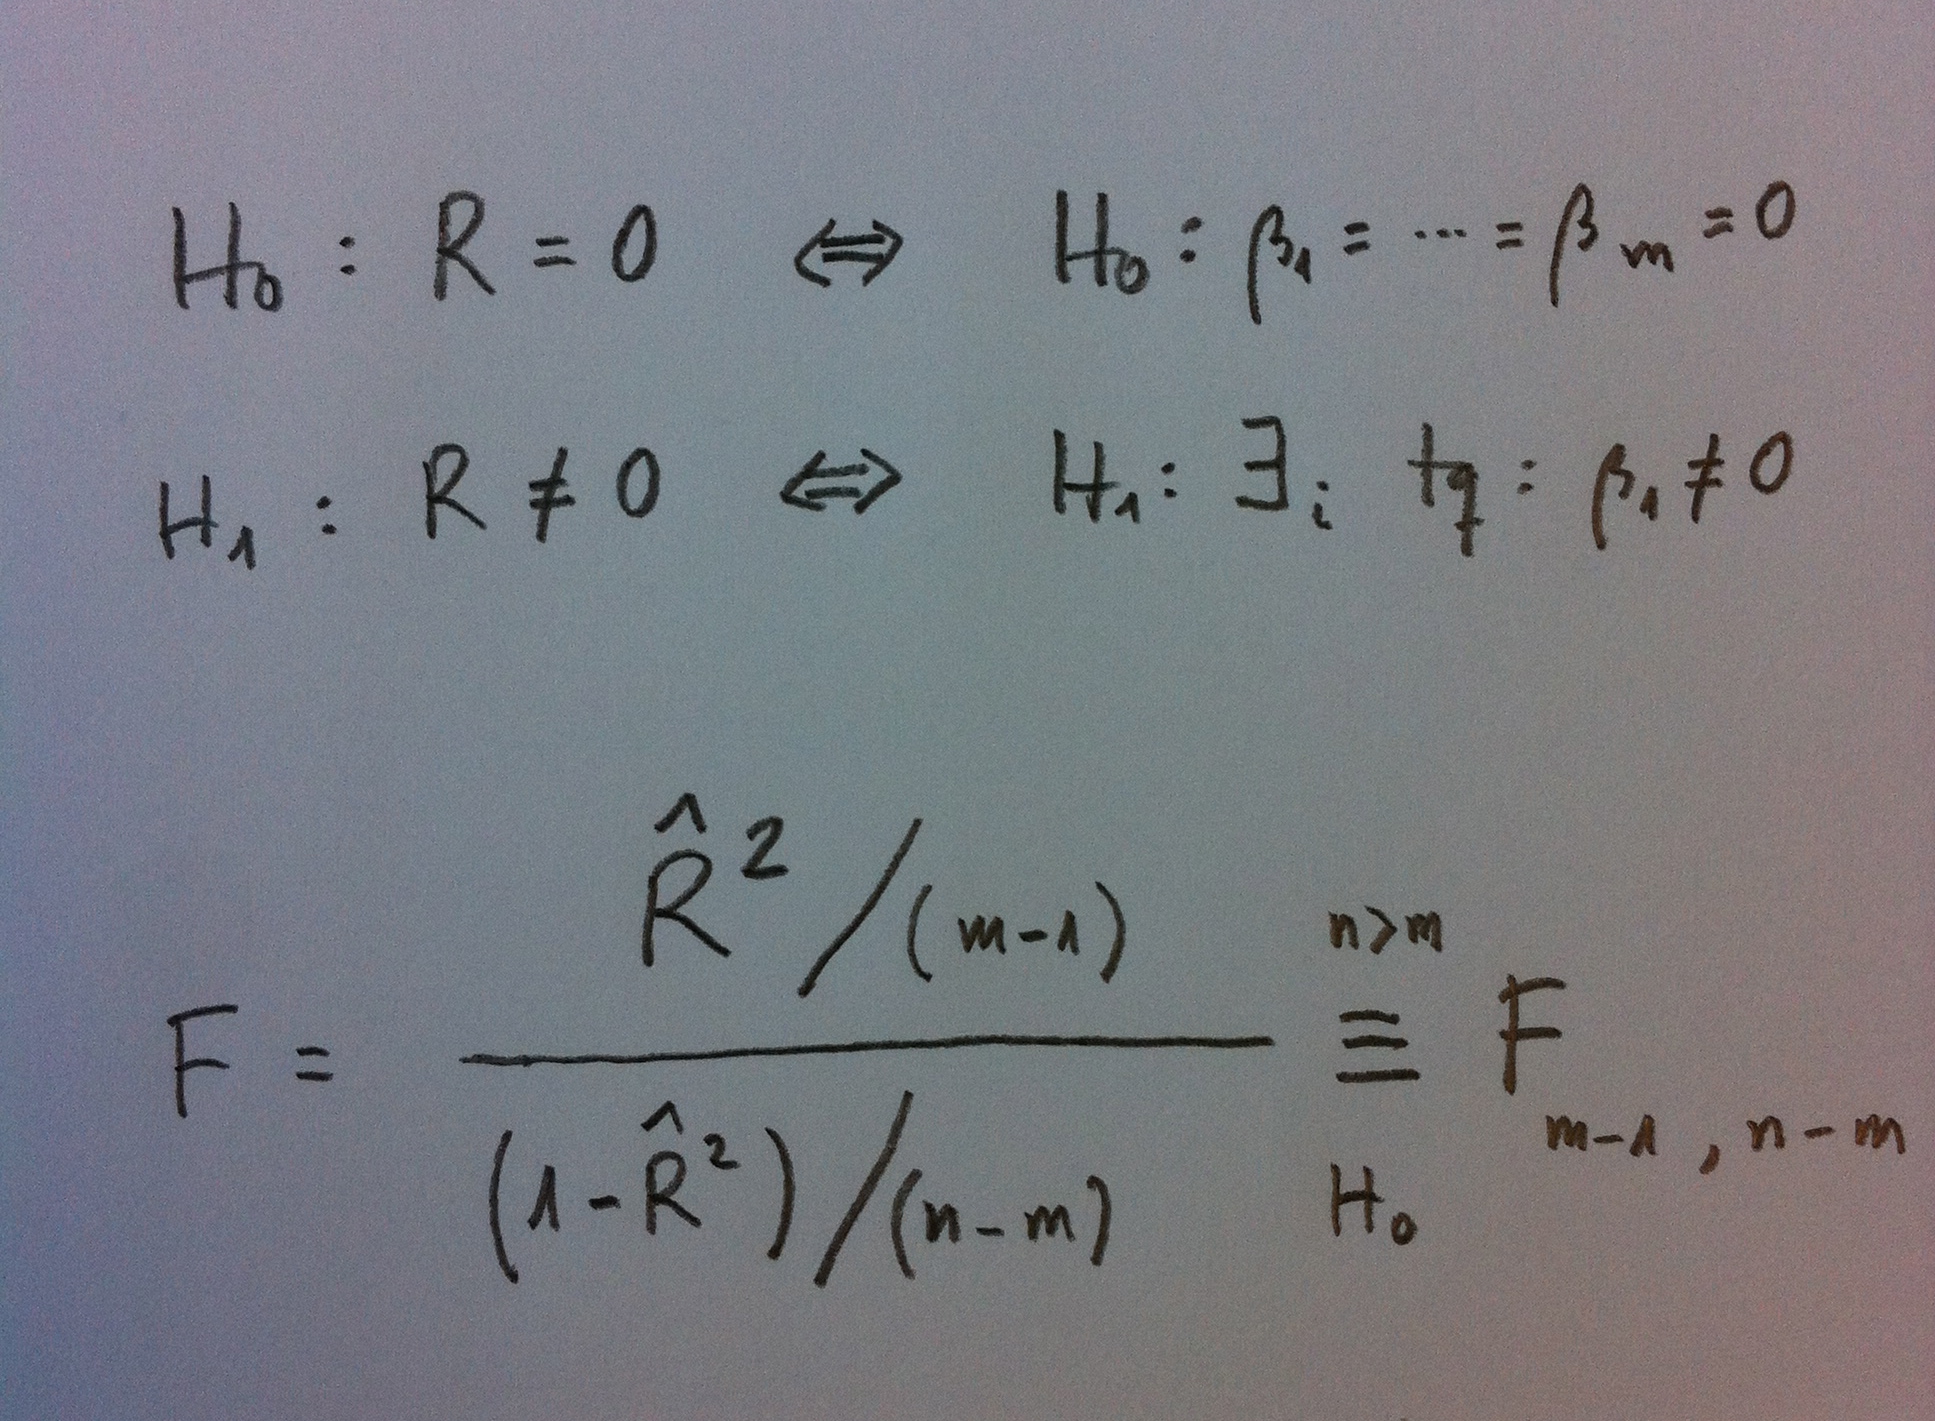 H₀ : R = 0 ⇔ H₀ : β₁ = ... = βₘ = 0
H₁ : R ≠ 0 ⇔ H₁ : ∃ᵢ tq : β₁ ≠ 0
F = (R̂² / (m-1)) / ((1-R̂²) / (n-m)) n>m ≡ H₀ F m-1 , n-m